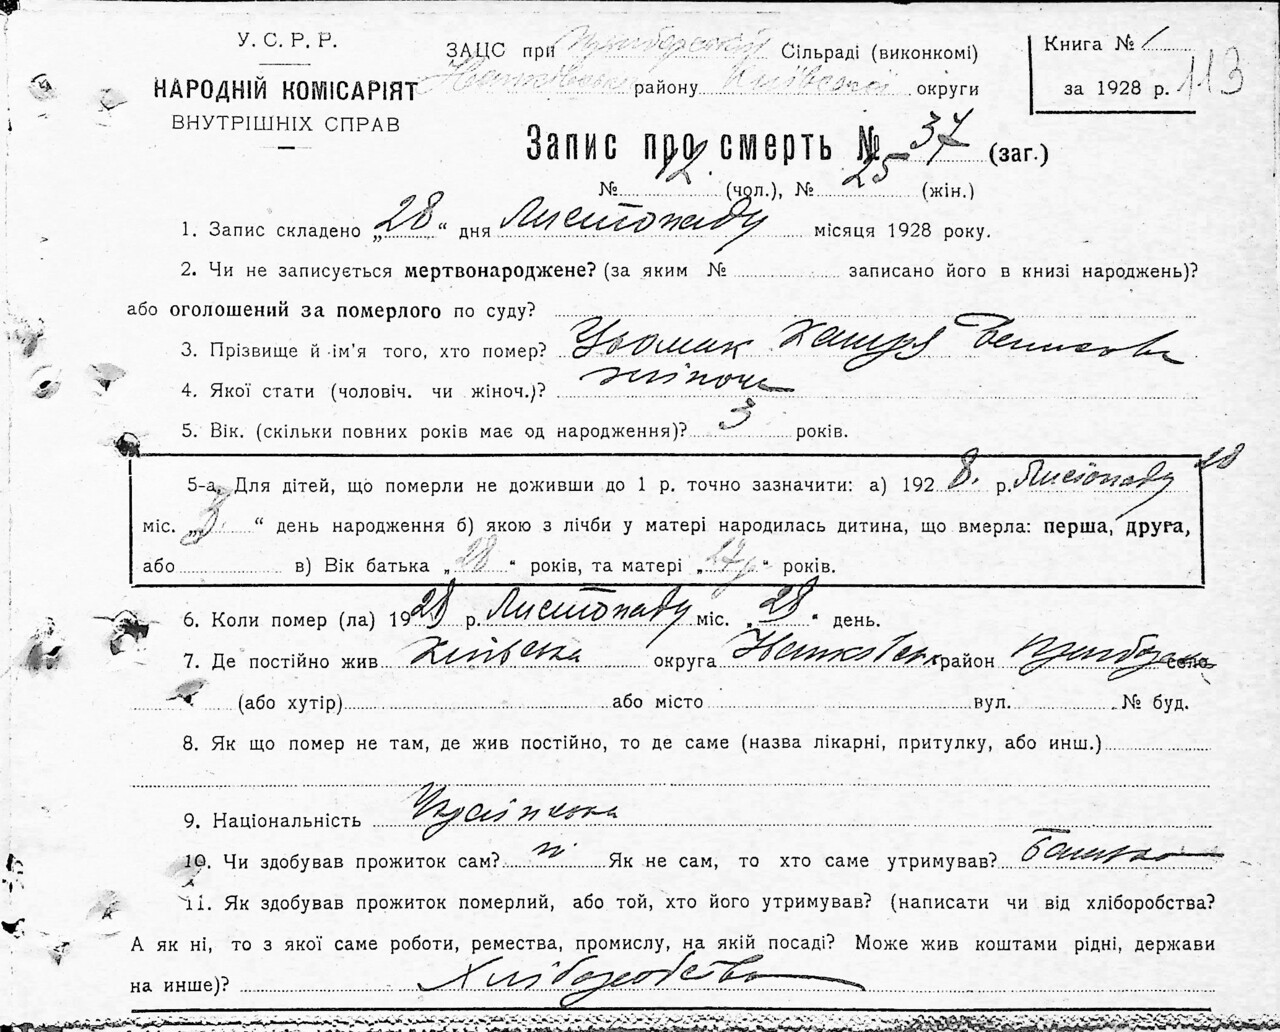 У. С. Р. Р.
НАРОДНІЙ КОМІСАРІЯТ
ВНУТРІШНІХ СПРАВ
ЗАЦС при Сільраді (виконкомі)
району Київської округи
Книга № 1
за 1928 р. 113
Запис про смерть № 37 (заг.)
№ 12. (чол.), № 25 (жін.)
1. Запис складено „28“ дня Листопаду місяця 1928 року.
2. Чи не записується мертвонароджене? (за яким № записано його в книзі народжень)?
або оголошений за померлого по суду?
3. Прізвище й ім'я того, хто помер? Цьомик
4. Якої стати (чоловіч. чи жіноч.)? жіноч
5. Вік. (скільки повних років має од народження)? 3 років.
5-а. Для дітей, що померли не доживши до 1 р. точно зазначити: а) 1928. р. Листопаду 28
міс. „3.“ день народження б) якою з лічби у матері народилась дитина, що вмерла: перша, друга,
або в) Вік батька „28“ років, та матері „ “ років.
6. Коли помер (ла) 1928 р. Листопаду міс. „28“ день.
7. Де постійно жив Київська округа район село
(або хутір) або місто вул. № буд.
8. Як що помер не там, де жив постійно, то де саме (назва лікарні, притулку, або инш.)
9. Національність Українська
10. Чи здобував прожиток сам? ні Як не сам, то хто саме утримував? Батько
11. Як здобував прожиток померлий, або той, хто його утримував? (написати чи від хліборобства?
А як ні, то з якої саме роботи, ремества, промислу, на якій посаді? Може жив коштами рідні, держави
на инше)? Хліборобство